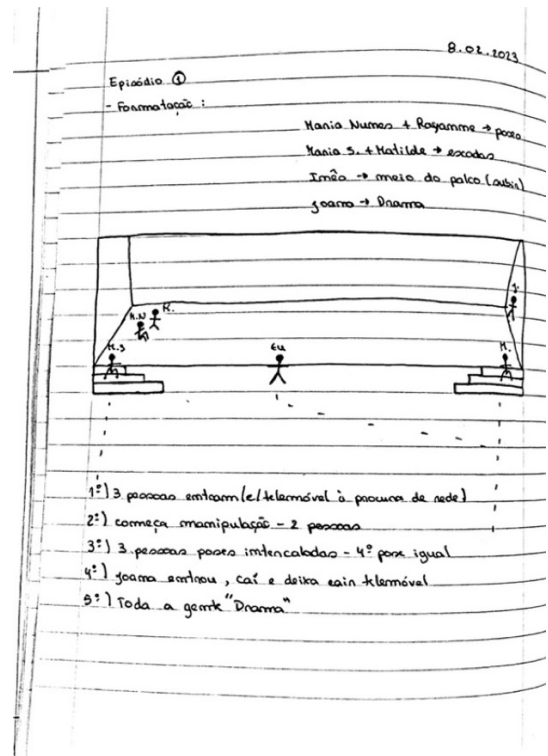 8.02.2023
Episódio ①
- Formatação :
Maria Nunes + Rayanne → poses
Maria S. + Matilde → escadas
Irnêo → meio do palco (subir)
Joana → Drama
J.
R.
M.N
M.S
Eu
M.
1º) 3 pessoas entram (c/ telemóvel à procura de rede)
2º) começa manipulação - 2 pessoas
3º) 3 pessoas poses intercaladas - 4º pose igual
4º) Joana entrou, cai e deixa cair telemóvel
5º) Toda a gente "Drama"